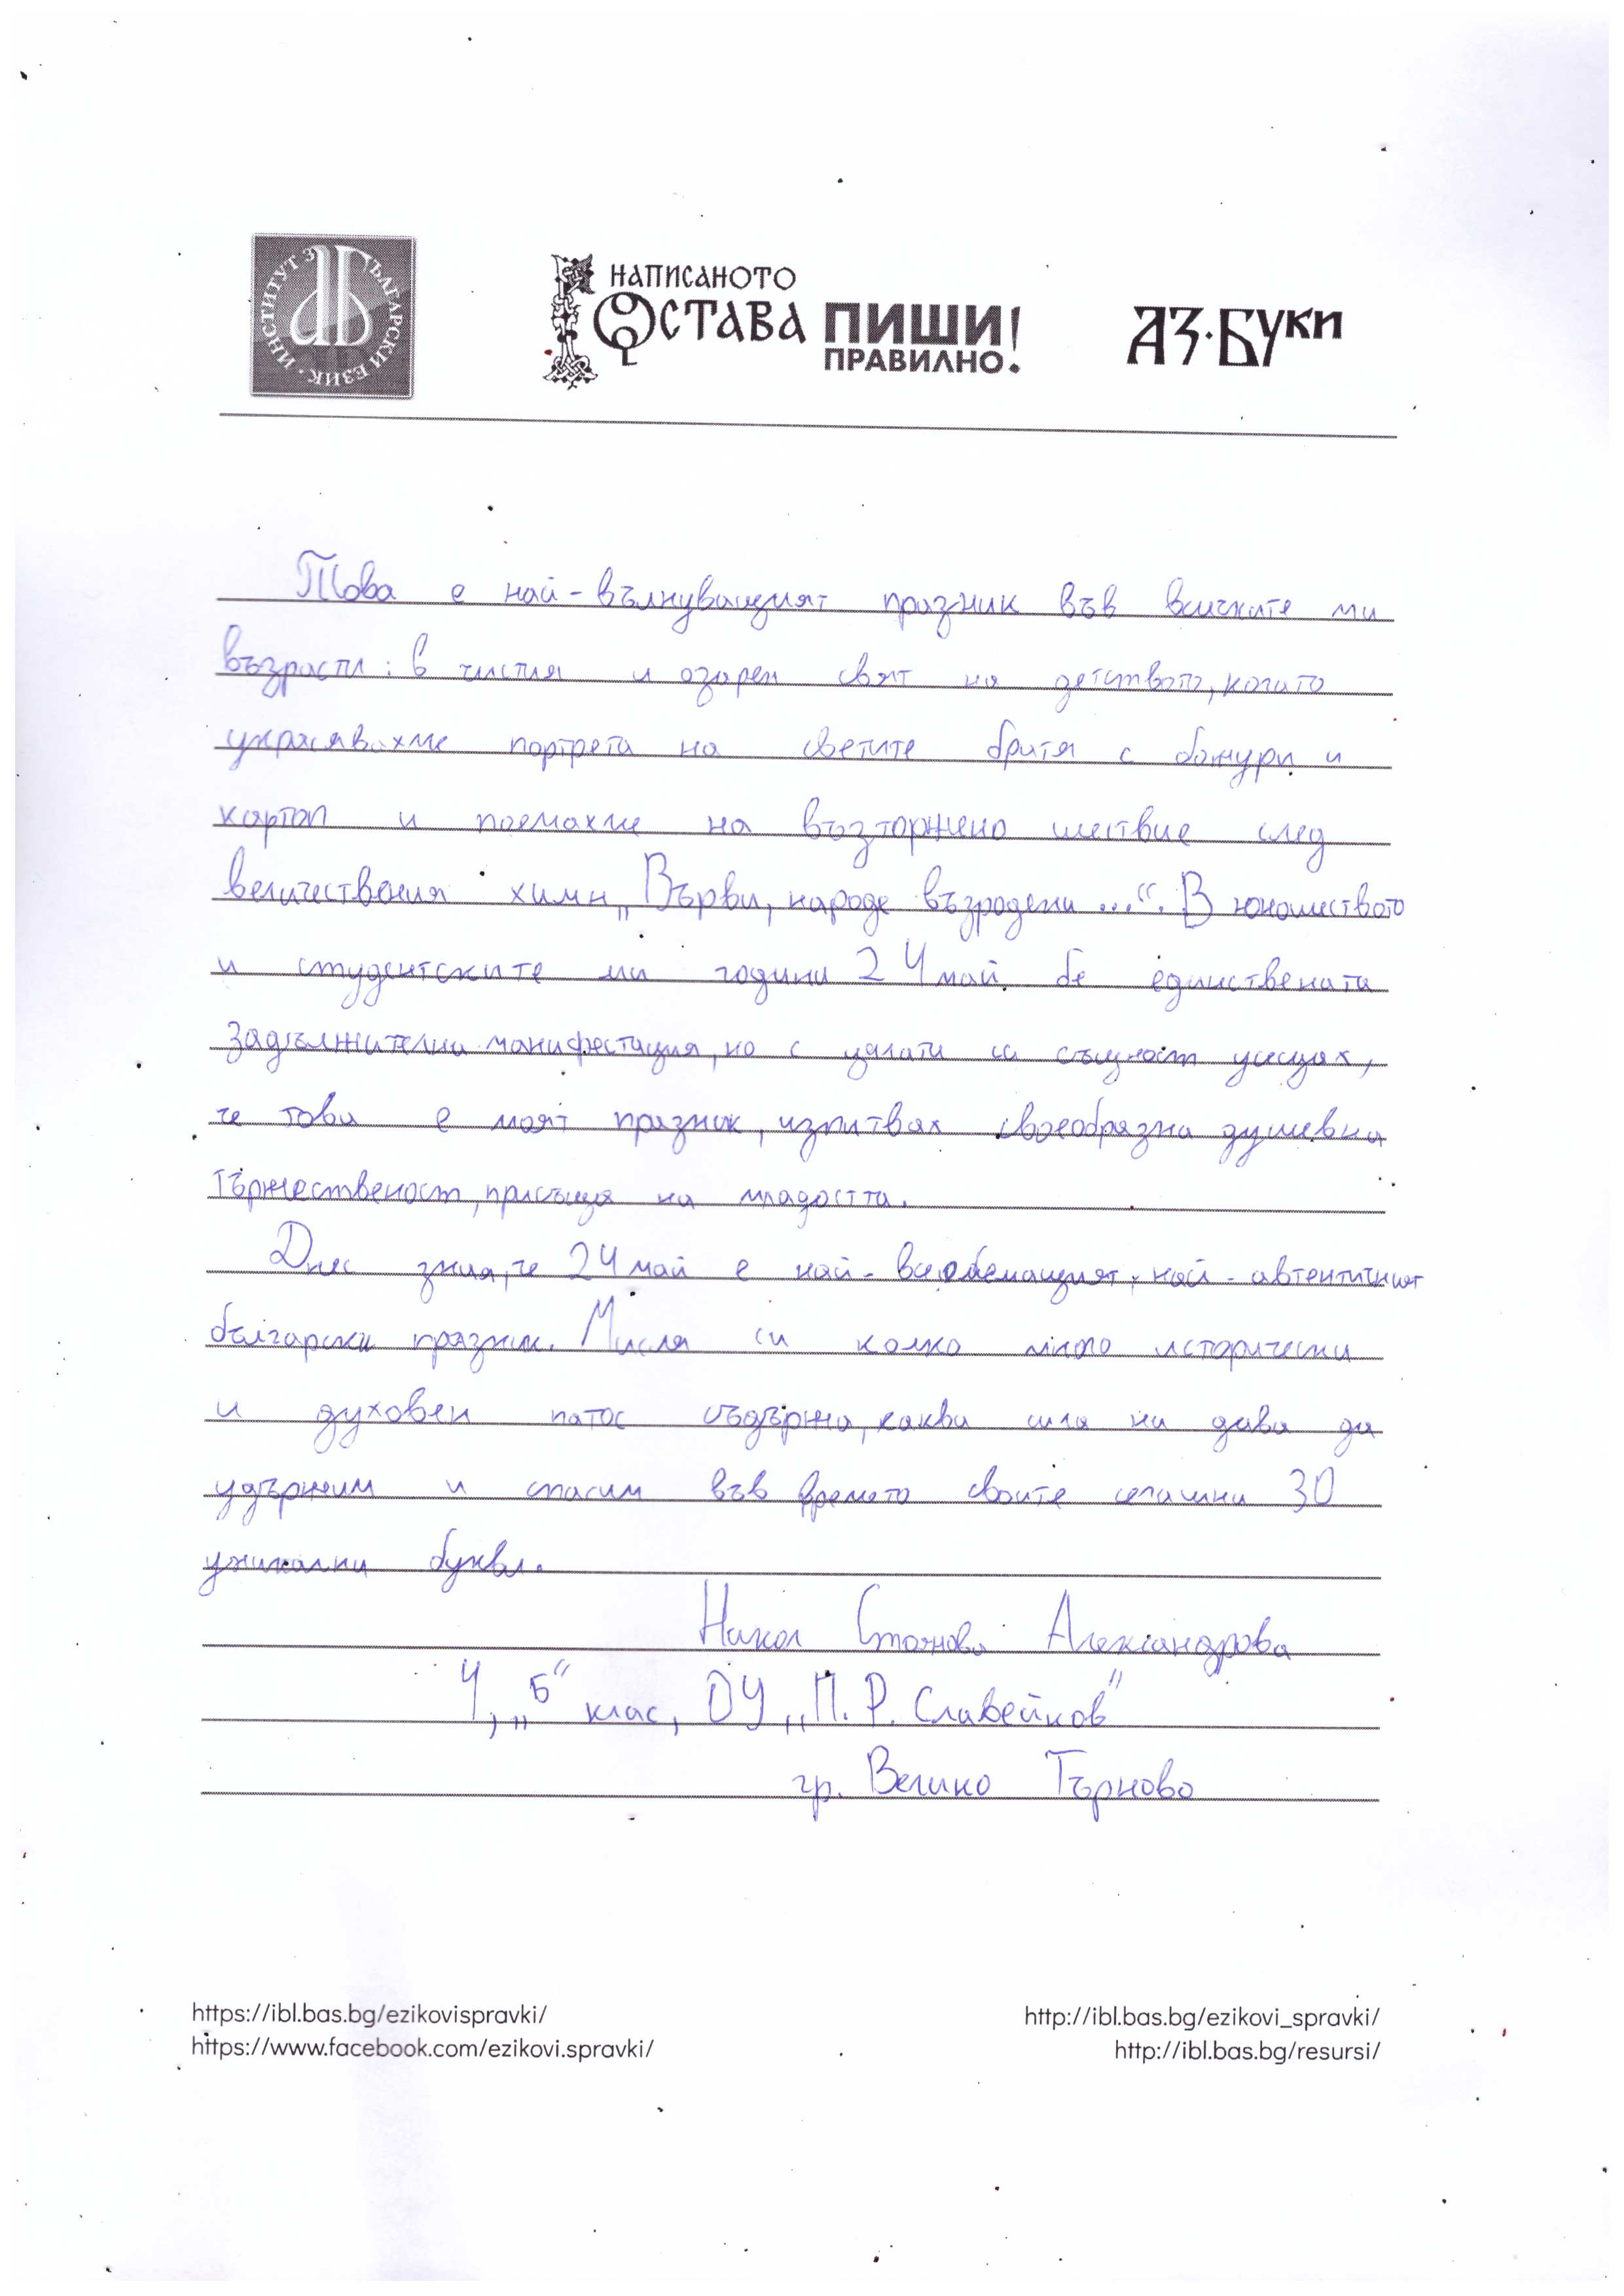 ИНСТИТУТ ЗА БЪЛГАРСКИ ЕЗИК
НАПИСАНОТО
ОСТАВА ПИШИ!
ПРАВИЛНО.
АЗ·БУКИ
Това е най-вълнуващият празник във всичките ми
възрасти: в чистия и озарен свят на детството, когато
украсявахме портрета на светите братя с божури и
картоп и поемахме на възторжено шествие след
величествения химн „Върви, народе възродени ...“. В юношеството
и студентските ми години 24 май бе единствената
задължителна манифестация, но с цялата си същност усещах,
че това е моят празник, изпитвах своеобразна душевна
тържественост, присъща на младостта.
Днес зная, че 24 май е най-всеобемащият, най-автентичният
български празник. Мисля си колко много исторически
и духовен патос съдържа, каква сила ни дава да
удържим и спасим във времето своите сегашни 30
уникални букви.
Никол Стоянова Александрова
4, „Б“ клас, ОУ „П. Р. Славейков“
гр. Велико Търново
https://ibl.bas.bg/ezikovispravki/
http://ibl.bas.bg/ezikovi_spravki/
https://www.facebook.com/ezikovi.spravki/
http://ibl.bas.bg/resursi/